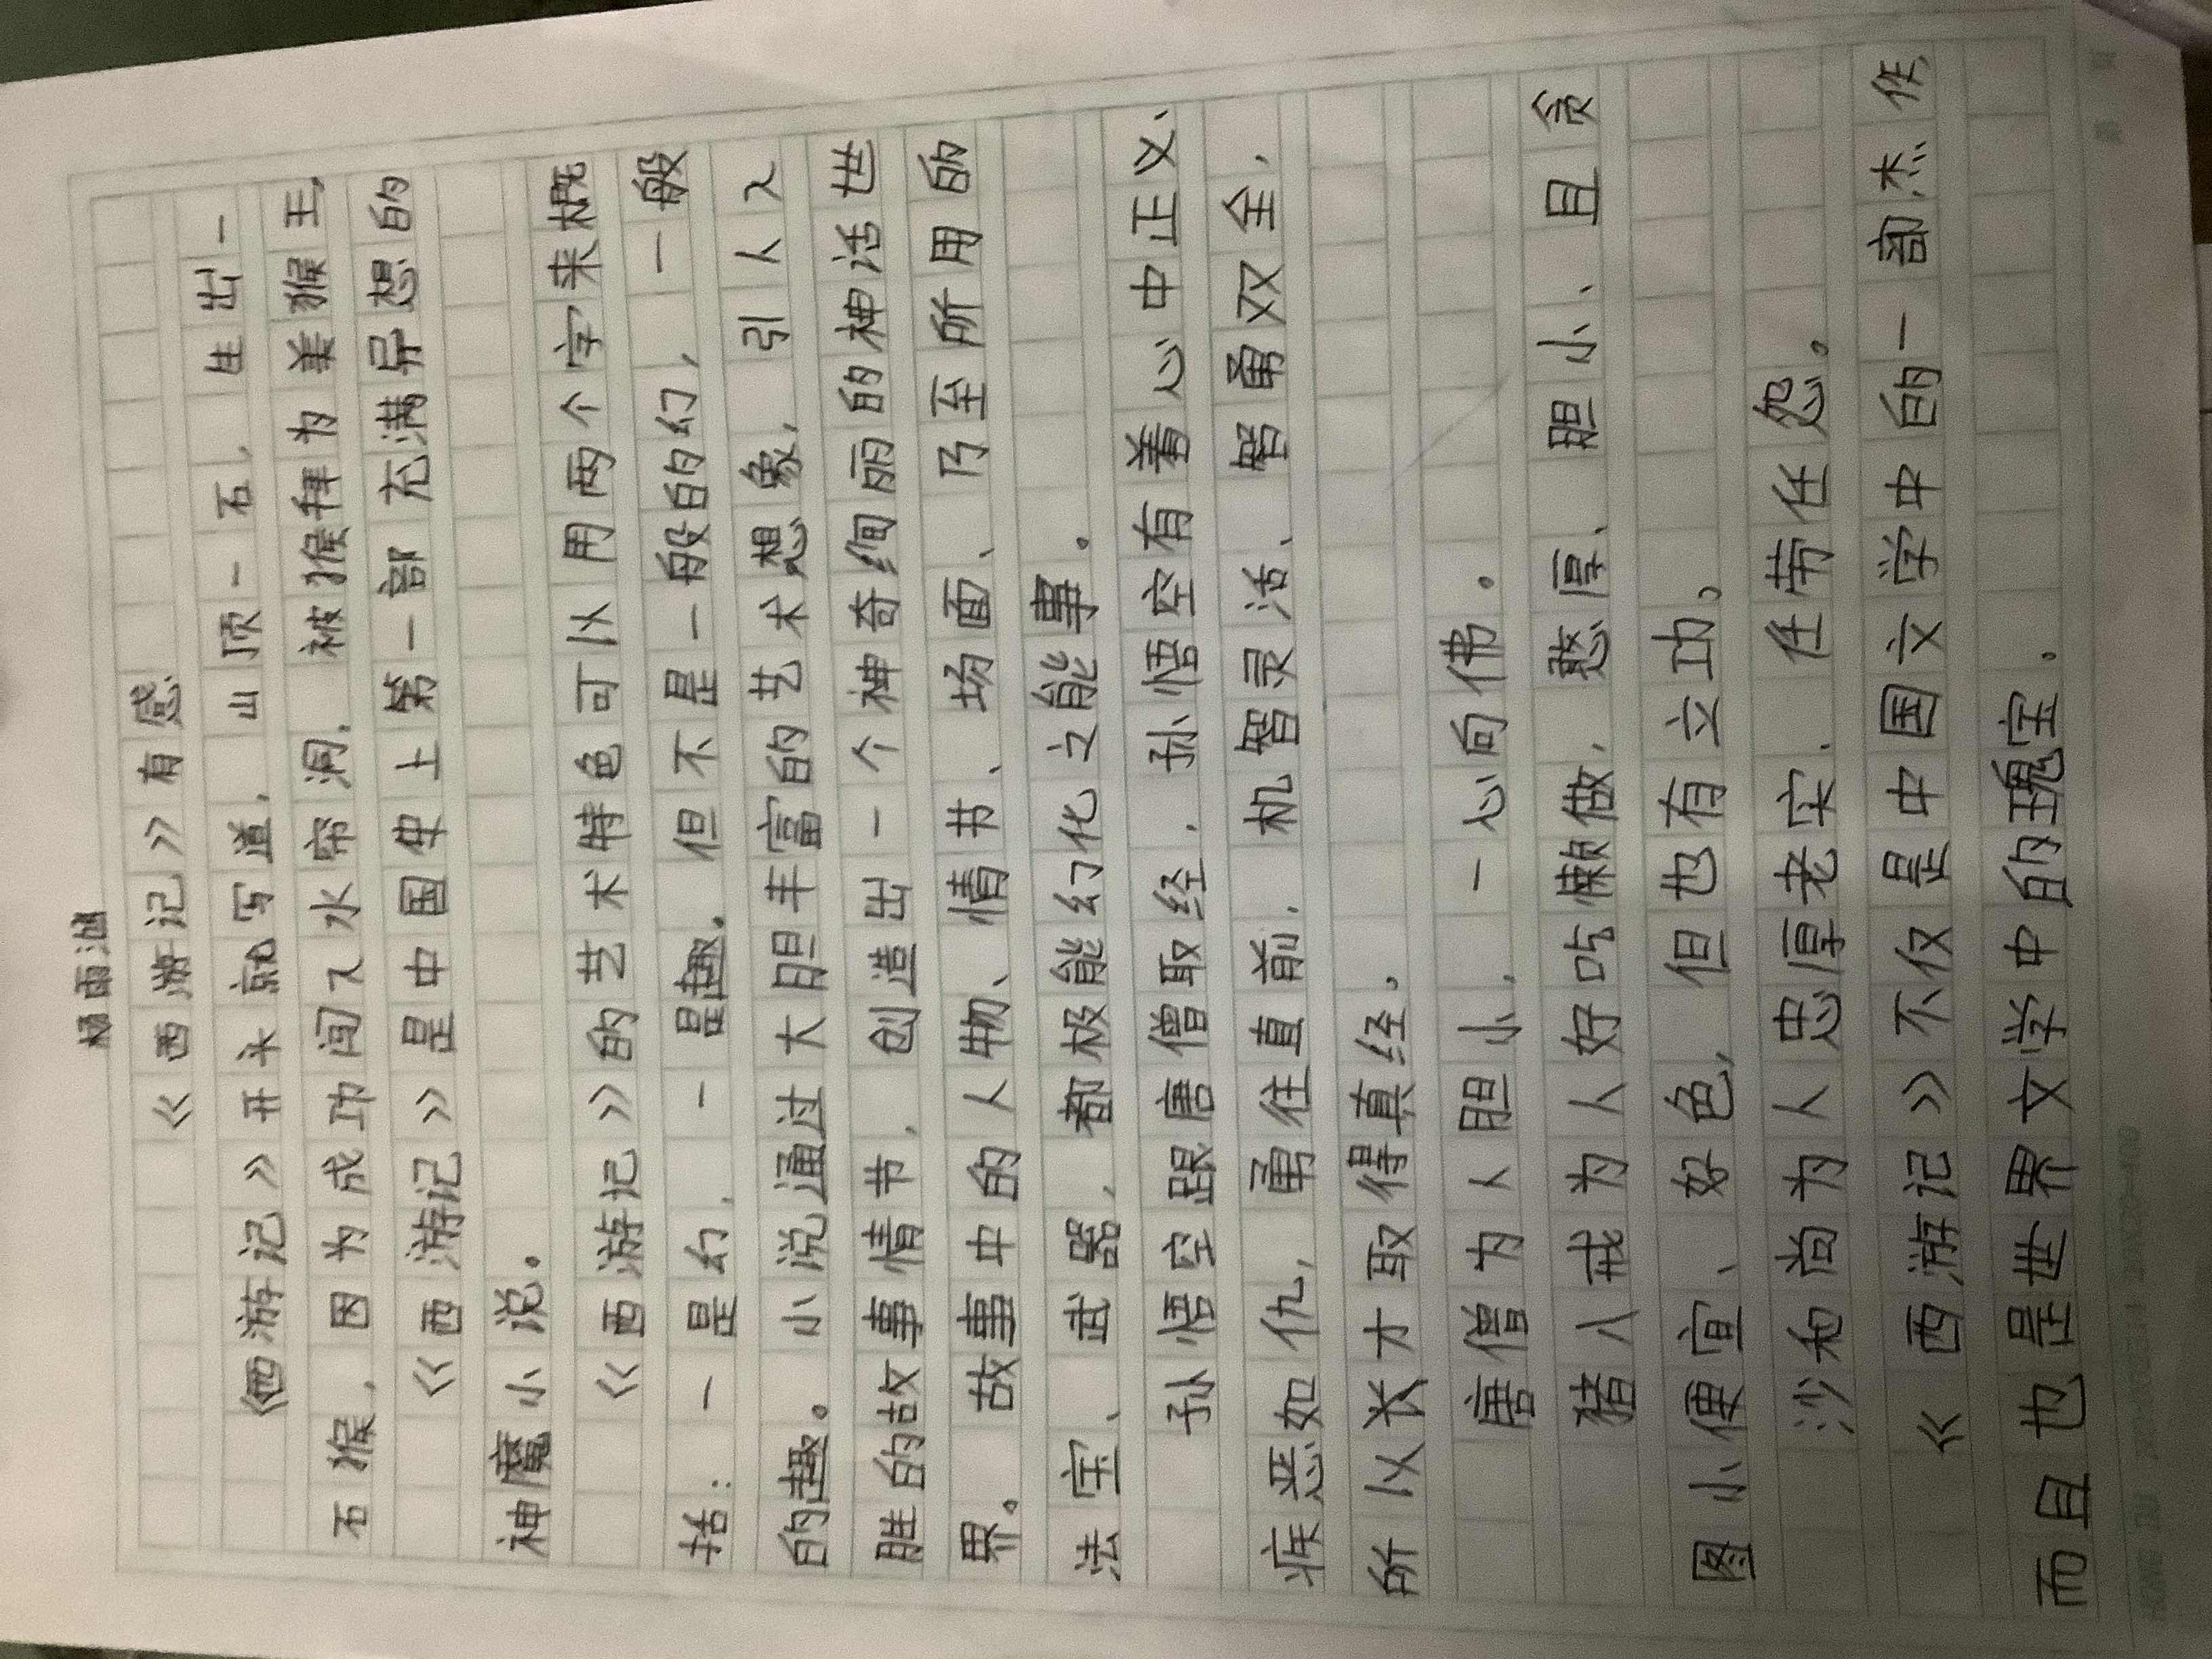 杨雨涵
《西游记》有感
《西游记》开头就写道，山顶一石，生出一
石猴，因为成功闯入水帘洞，被猴拜为美猴王，
《西游记》是中国史上第一部充满异想的
神魔小说。
《西游记》的艺术特色可以用两个字来概
括：一是幻，一是趣。但不是一般的幻，一般
的趣。小说通过大胆丰富的艺术想象，引人入
胜的故事情节，创造出一个神奇绚丽的神话世
界。故事中的人物、情节、场面、乃至所用的
法宝、武器，都极能幻化之能事。
孙悟空跟唐僧取经，孙悟空有着心中正义、
疾恶如仇，勇往直前，机智灵活、智勇双全，
所以次才取得真经。
唐僧为人胆小，一心向佛。
猪八戒为人好吃懒做，憨厚、胆小、且贪
图小便宜、好色，但也有立功。
沙和尚为人忠厚老实，任带任怨。
《西游记》不仅是中国文学中的一部杰作
而且也是世界文学中的瑰宝。